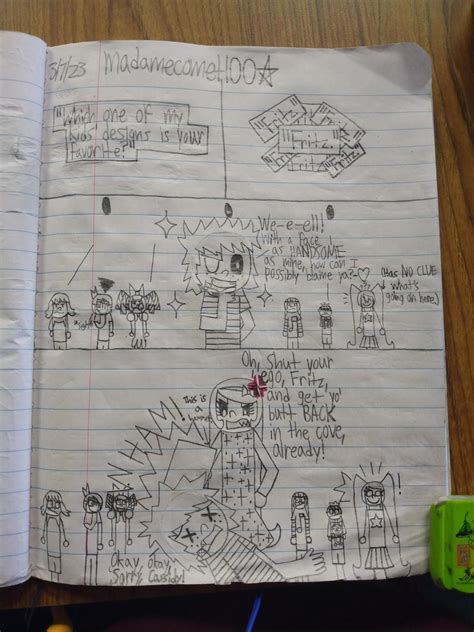 3/7/23 madamecomet100☆
"Which one of my
kids' designs is your
favorite?"
"Fritz."
"Fritz."
"Fritz."
We-e-ell!
With a face
as HANDSOME
as mine, how can I
possibly blame ya?~♡
(Has NO CLUE
what's
going on here.)
*sigh*
Oh, shut your
ego, Fritz,
and get yo'
butt BACK
in the cove,
already!
This is
a
WHAM!
Okay, okay,
Sorry, Cassidy!
!